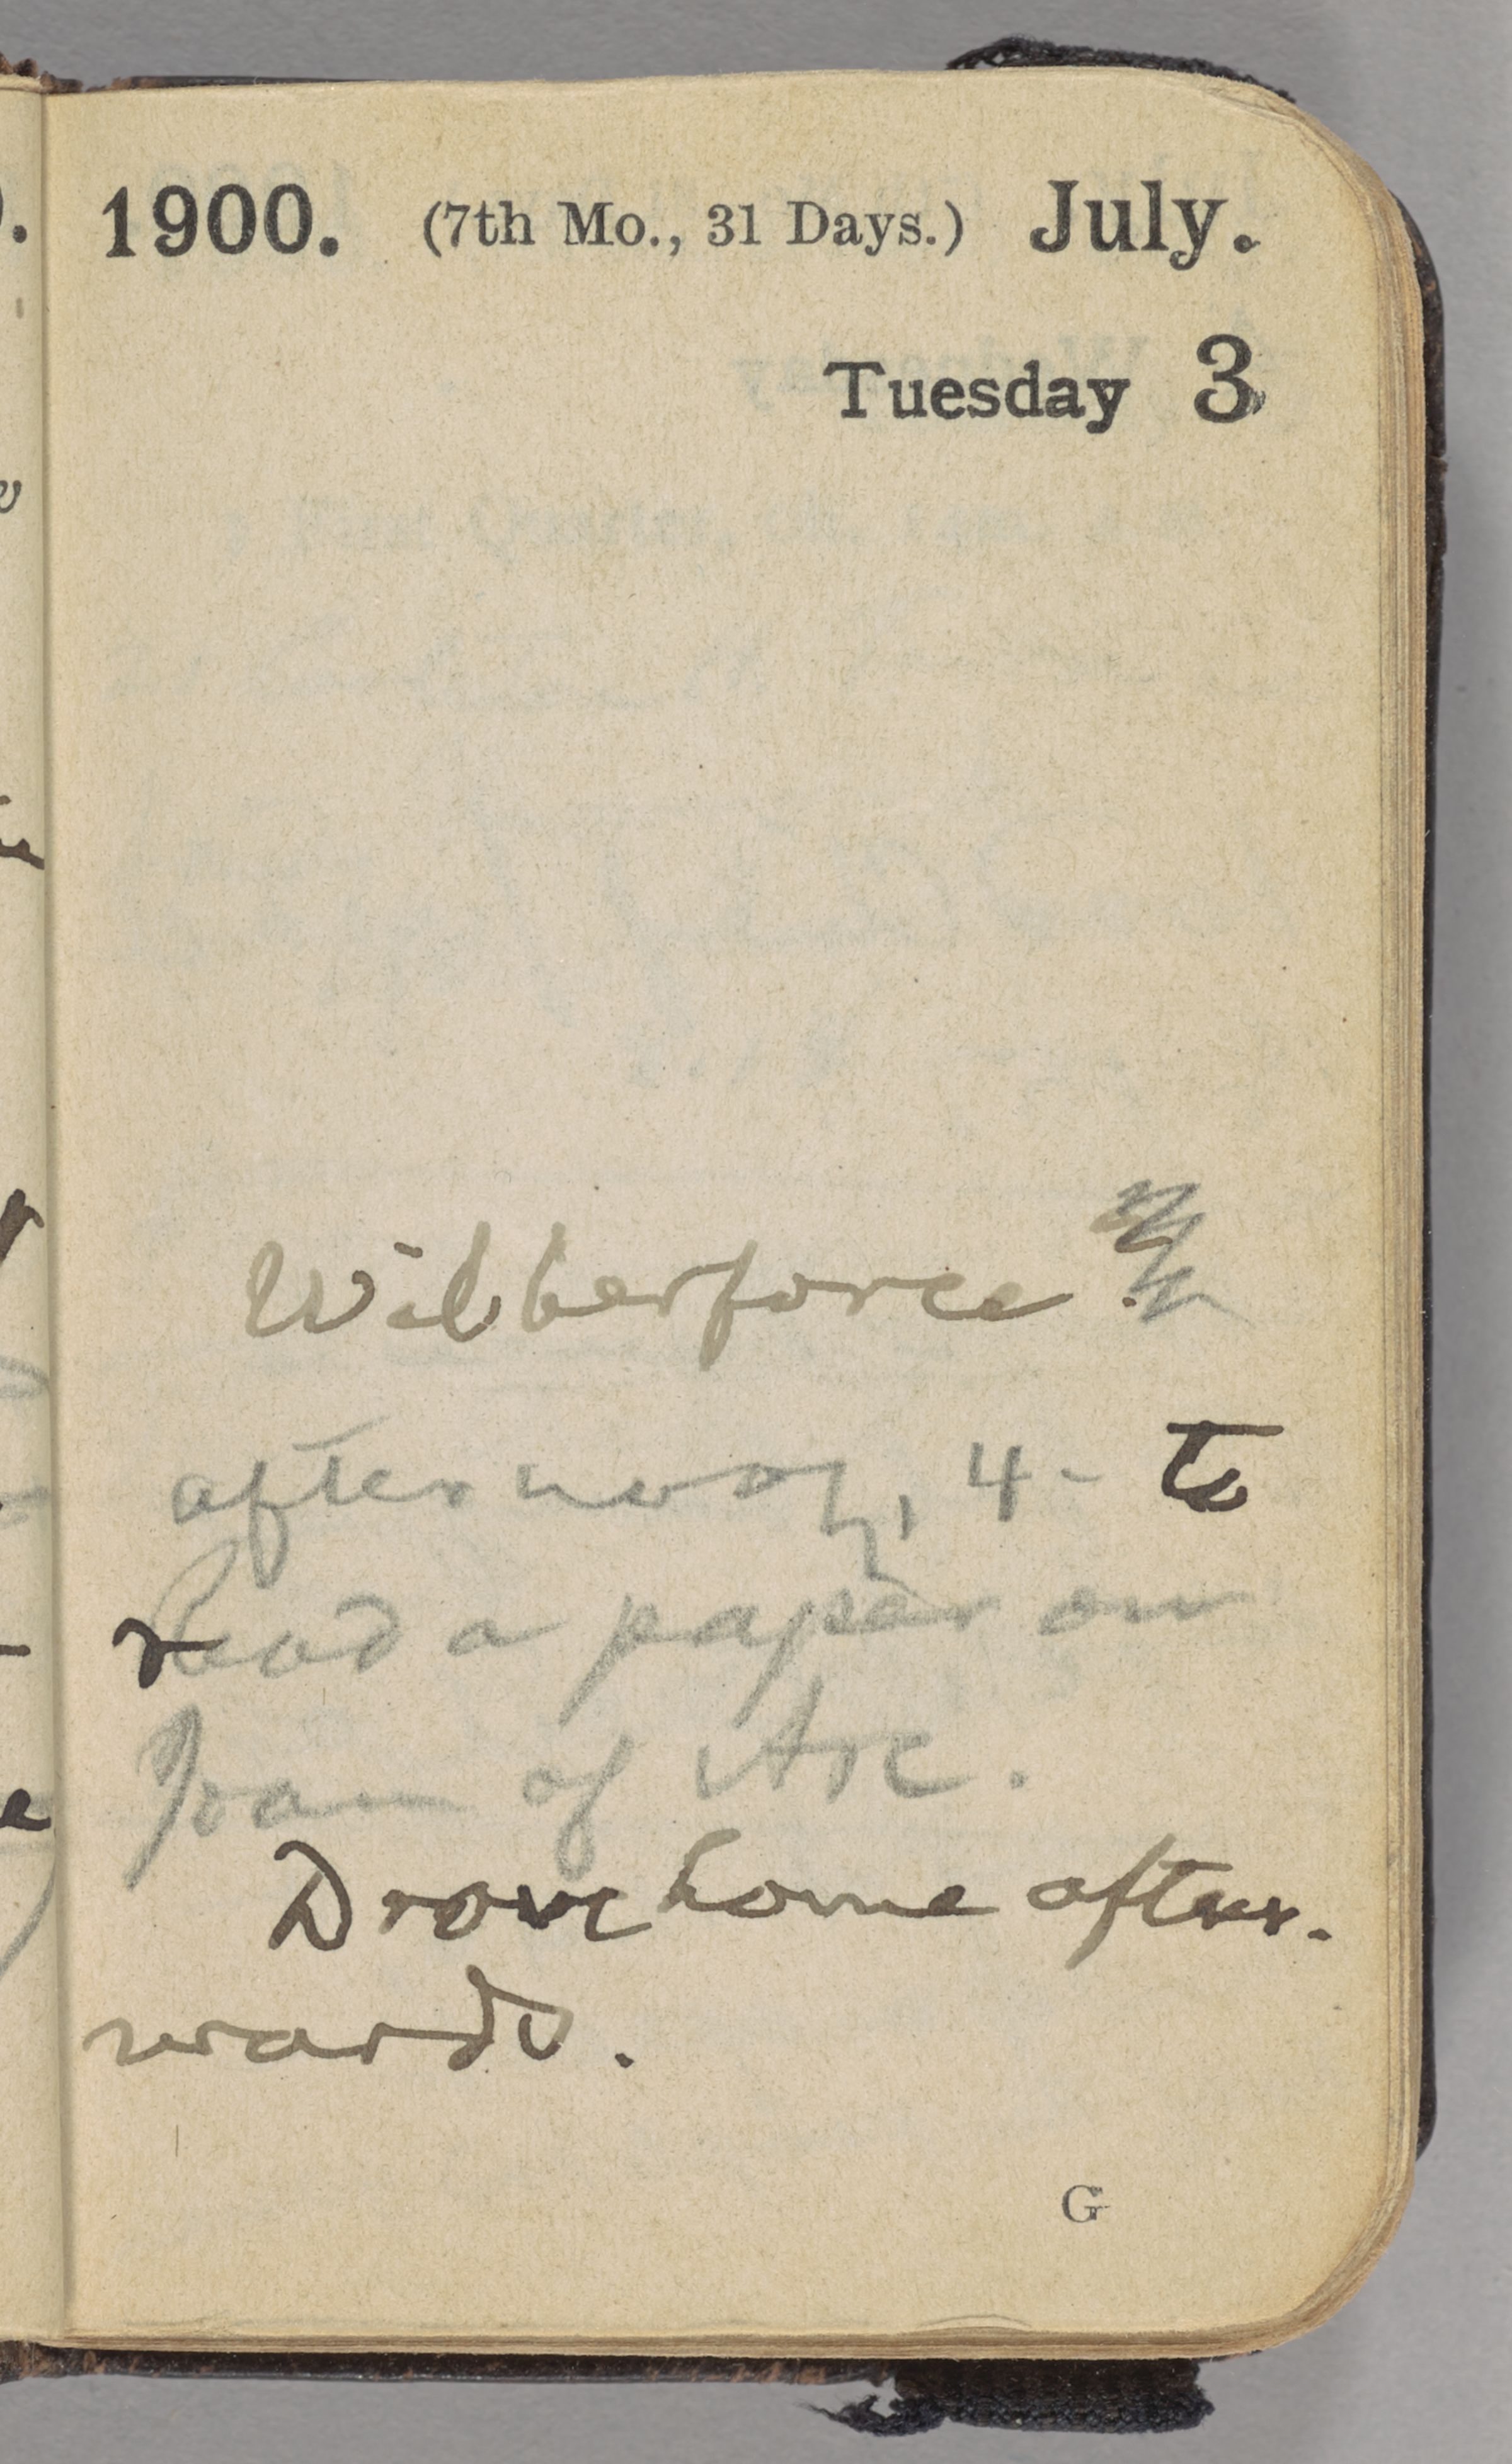 1900. (7th Mo., 31 Days.) July.
Tuesday 3
Wilberforce.
afternoon, 4 - to
read a paper on
Joan of Arc.
Drove home after-
wards.
G